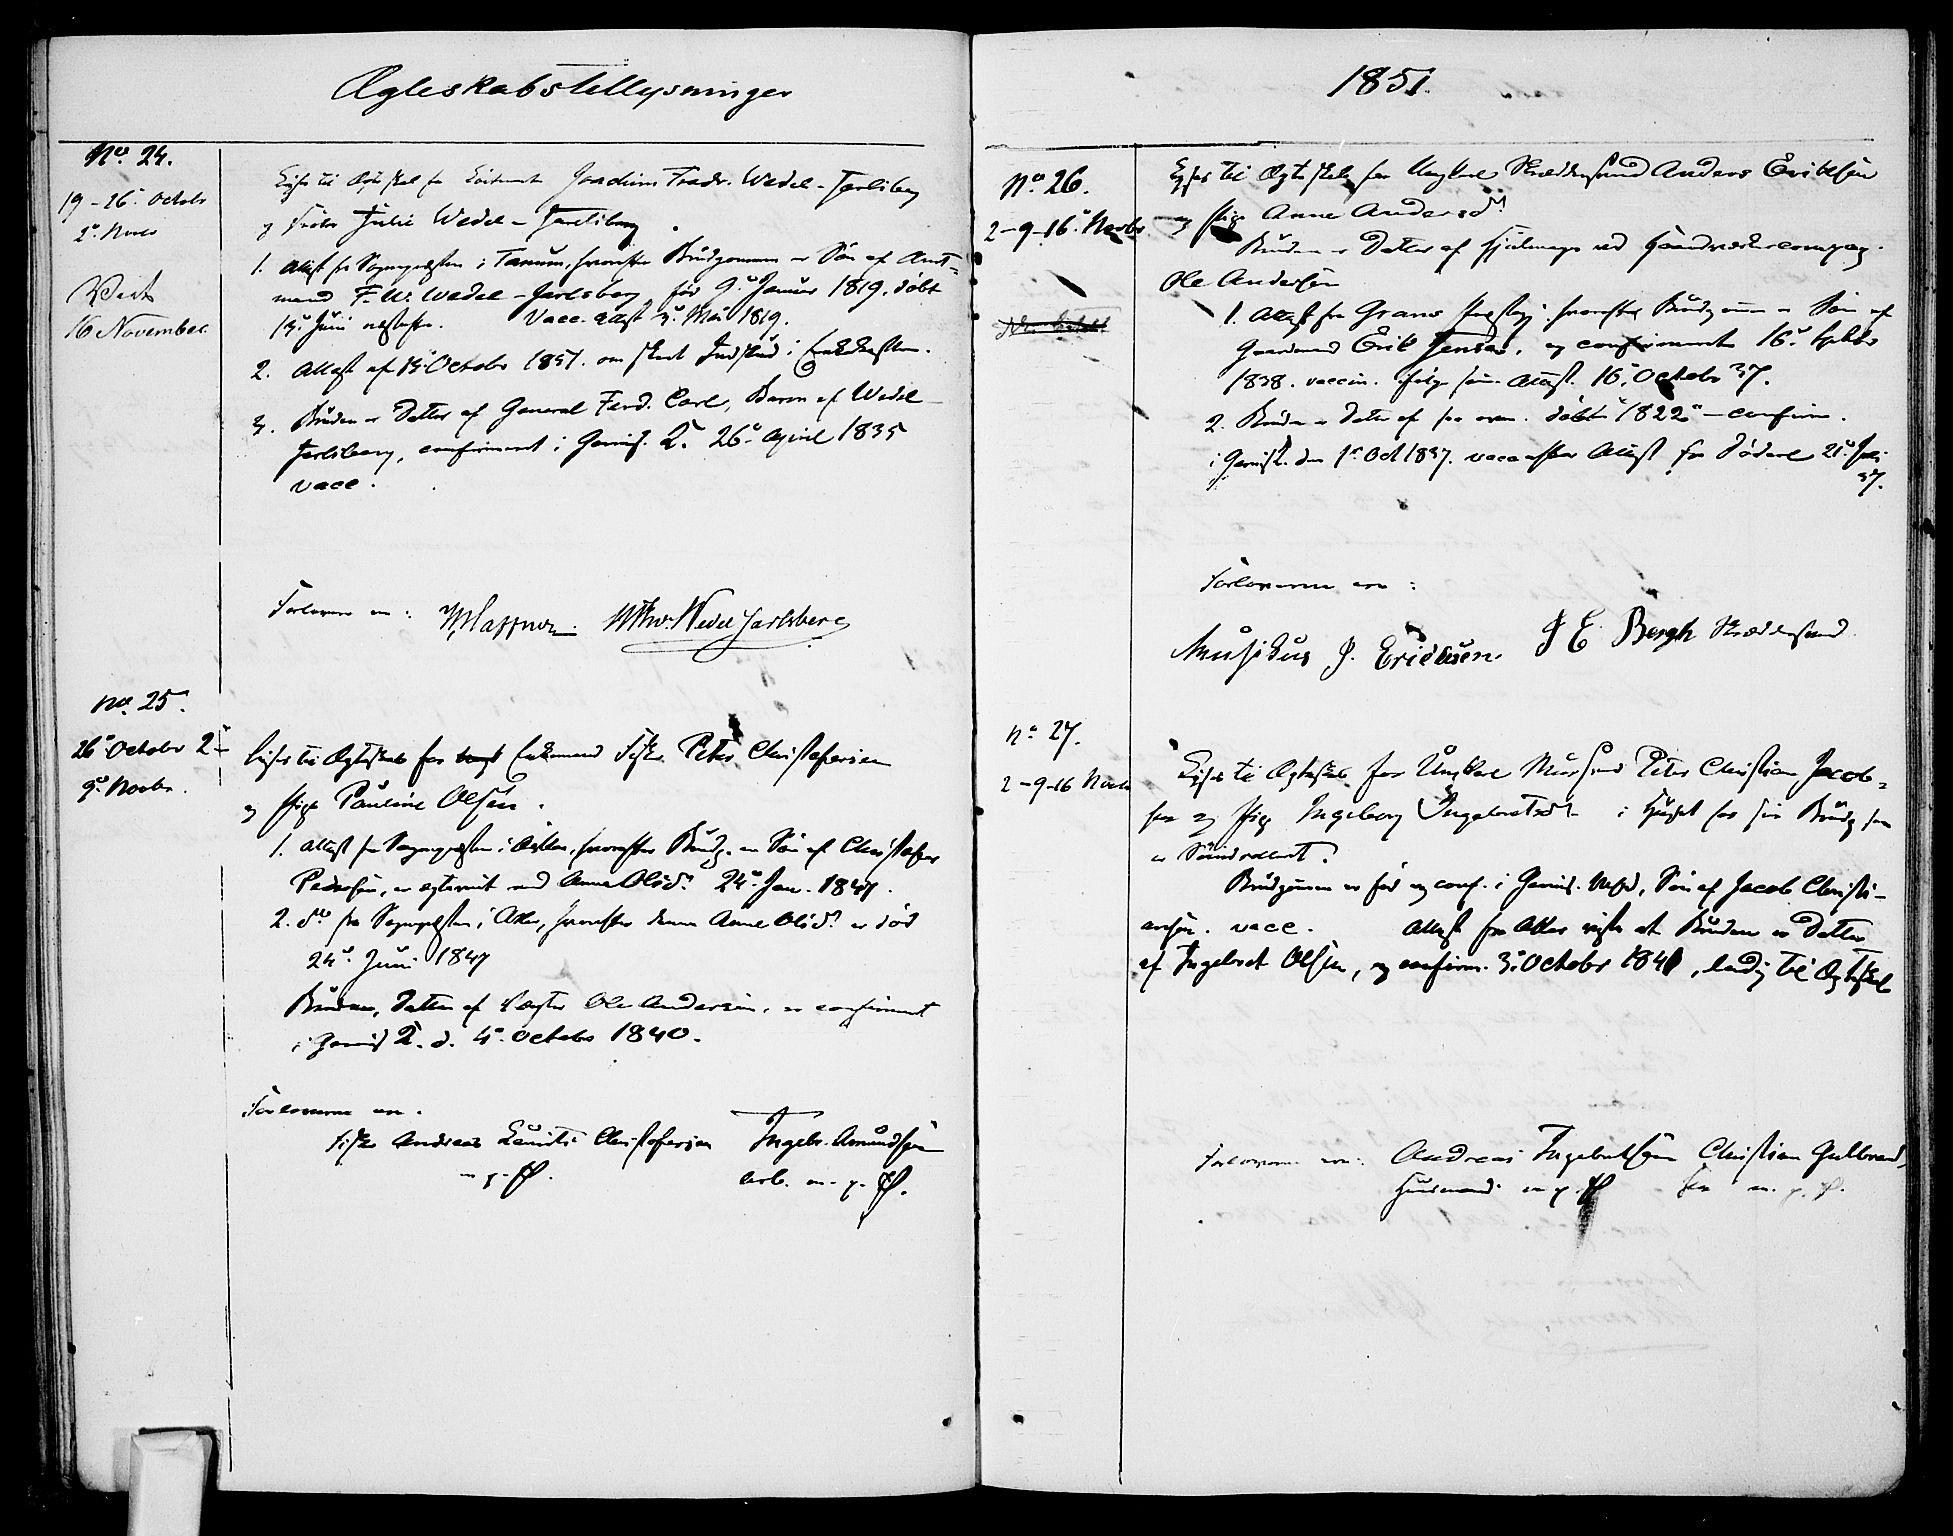 Ægteskabstillysninger
No. 24.
19-26. Octobr
2. Novbr
Viede
16 November
Lyses til Ægteskab for Lieutenant Joachim Fredr. Wedel-Jarlsberg
og Frøken Julie Wedel-Jarlsberg.
1. Attest fra Sognepræsten i Tanum, hvorefter Brudgommen er Søn af Amt-
mand F. W. Wedel-Jarlsberg, før 9. Januar 1819. døbt
13. Juni næstefter. Vacc. Attest 3. Mai 1819.
2. Attest af 15 October 1851. om skeet Indskud i Enkekassen.
3. Bruden er Datter af General Ferd. Carl, Baron af Wedel-
Jarlsberg, confirmeret i Garnis. K. 26. April 1835
vacc.
Forlovere ere: Wedel Jarlsberg
No. 25.
26. Octobr 2-
9. Novbr.
Lyses til Ægteskab for Enkemand Fisker Peter Christofersen
og Pige Pauline Olsen.
1. Attest fra Sognepræsten i Asker, hvorefter Brudg. er Søn af Christofer
Pedersen, er ægteviet med Anne Olsd. 24. Jan. 1847.
2. do fra Sognepræsten i Aker, hvorefter denne Anne Olsd. er død
24. Juni 1847
Bruden, Datter af Ole Andersen, er confirmeret
i Garnis K. d. 4. Octobr 1840.
Forloverne ere.
Fisker Andreas Lauritz Christofersen Ingebr. Amundsen
m. p. P. arb. m. p. P.
1851.
No. 26.
2-9-16. Novbr
Lyses til Ægteskab for Ungkarl Skræddersvend Anders Eriksen
og Pige Anne Andersd.
Bruden er Datter af ved Haandværkercompag.
Ole Andersen
1. Attest fra Grans Præstegj. hvorefter Brudgommen er Søn af
Gaardmand Erik Jensen, og confirmeret 16. Septbr
1838. vaccin. ifølge samme Attest. 16. Octobr 37.
2. Bruden er Datter af som oven. døbt 1822 - confirm.
i Garnis K. den 1. Oct 1837. vacc efter Attest fra 21. Juli
37.
Forloverne ere:
Musikus J. Ericksen. J E. Bergh Skræddersvend.
No. 27.
2-9-16 Novbr
Lyses til Ægteskab for Ungkarl Mursvend Peter Christian Jacob-
sen og Pige Ingeborg Ingebretsd. i Huset hos sin Brudg som
er
Brudgommen er fød og conf. i Garnis. Søn af Jacob Christi-
ansen. vacc. Attest fra Aker viser at Bruden er Datter
af Ingebret Olsen, og confirm. 3. Octobr 1841, ledig til Ægteskab
Forloverne ere: Andreas Ingebretsen Christian Gulbrand-
Huusmand m. p. P sen m. p. P.